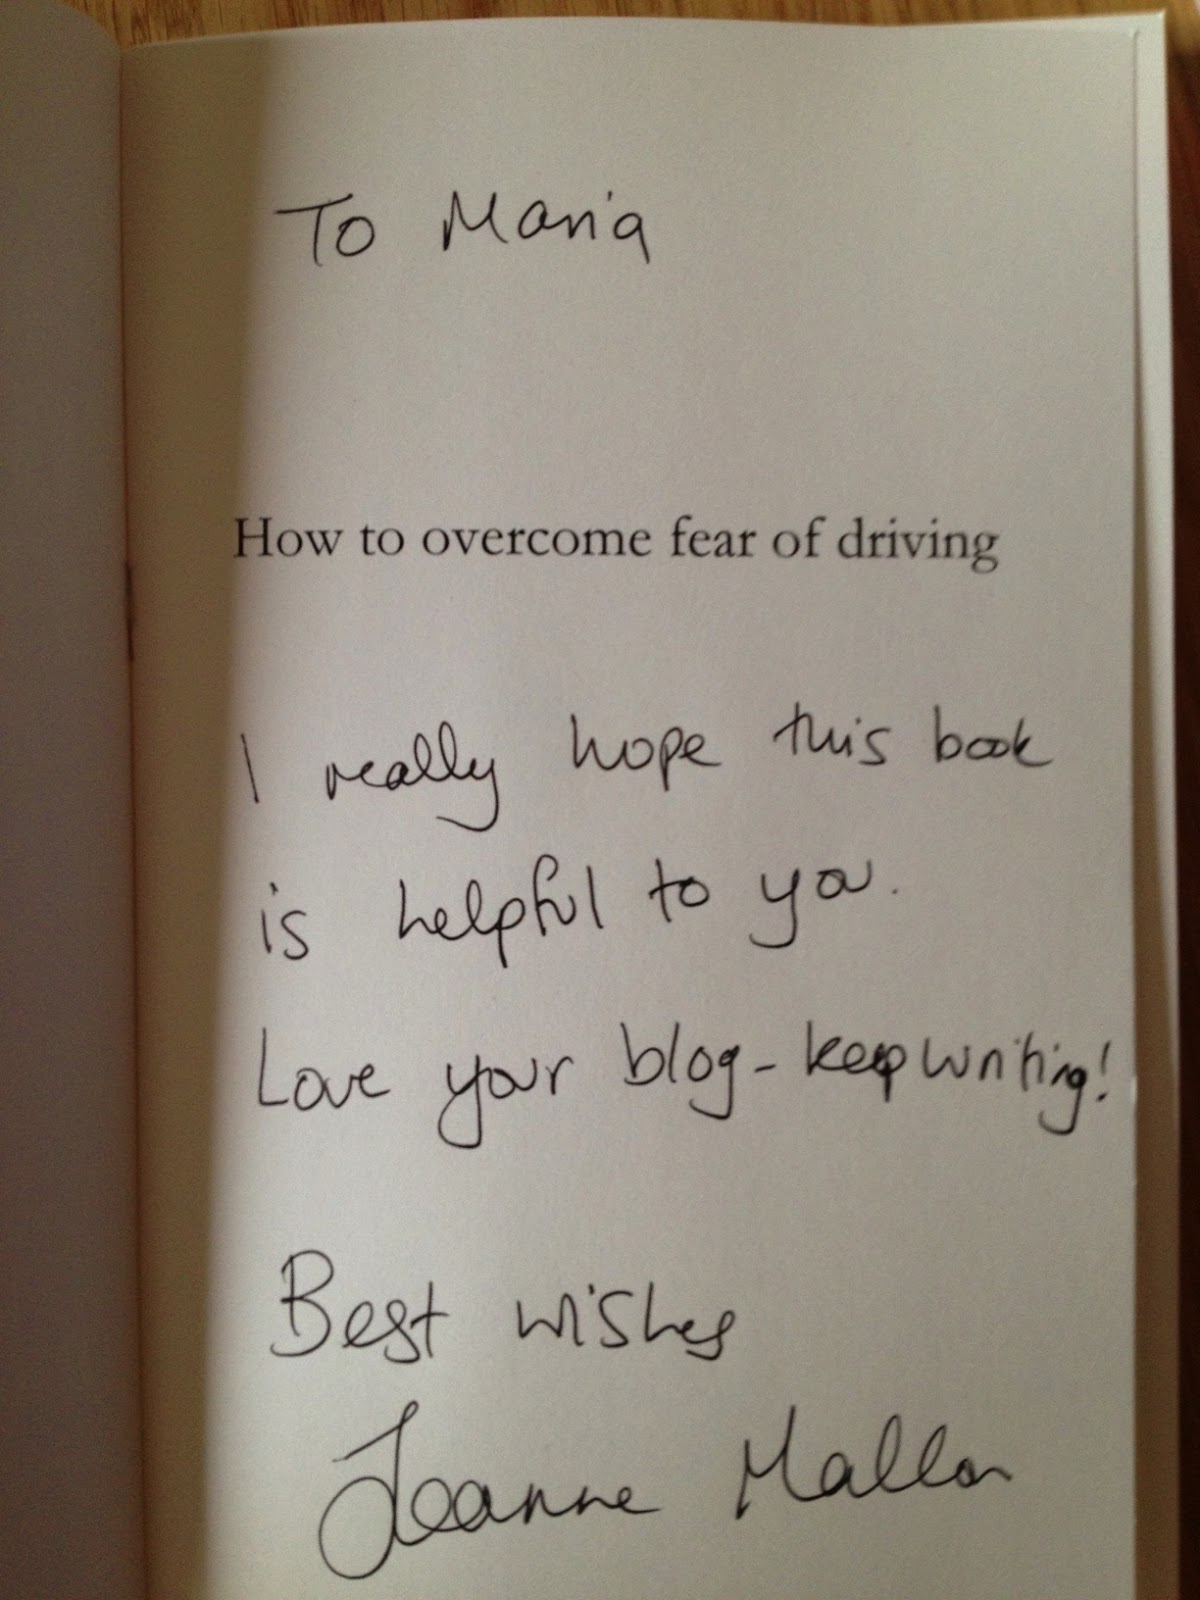 To Maria
How to overcome fear of driving
I really hope this book
is helpful to you.
Love your blog - keep writing!
Best wishes
Joanne Mallon